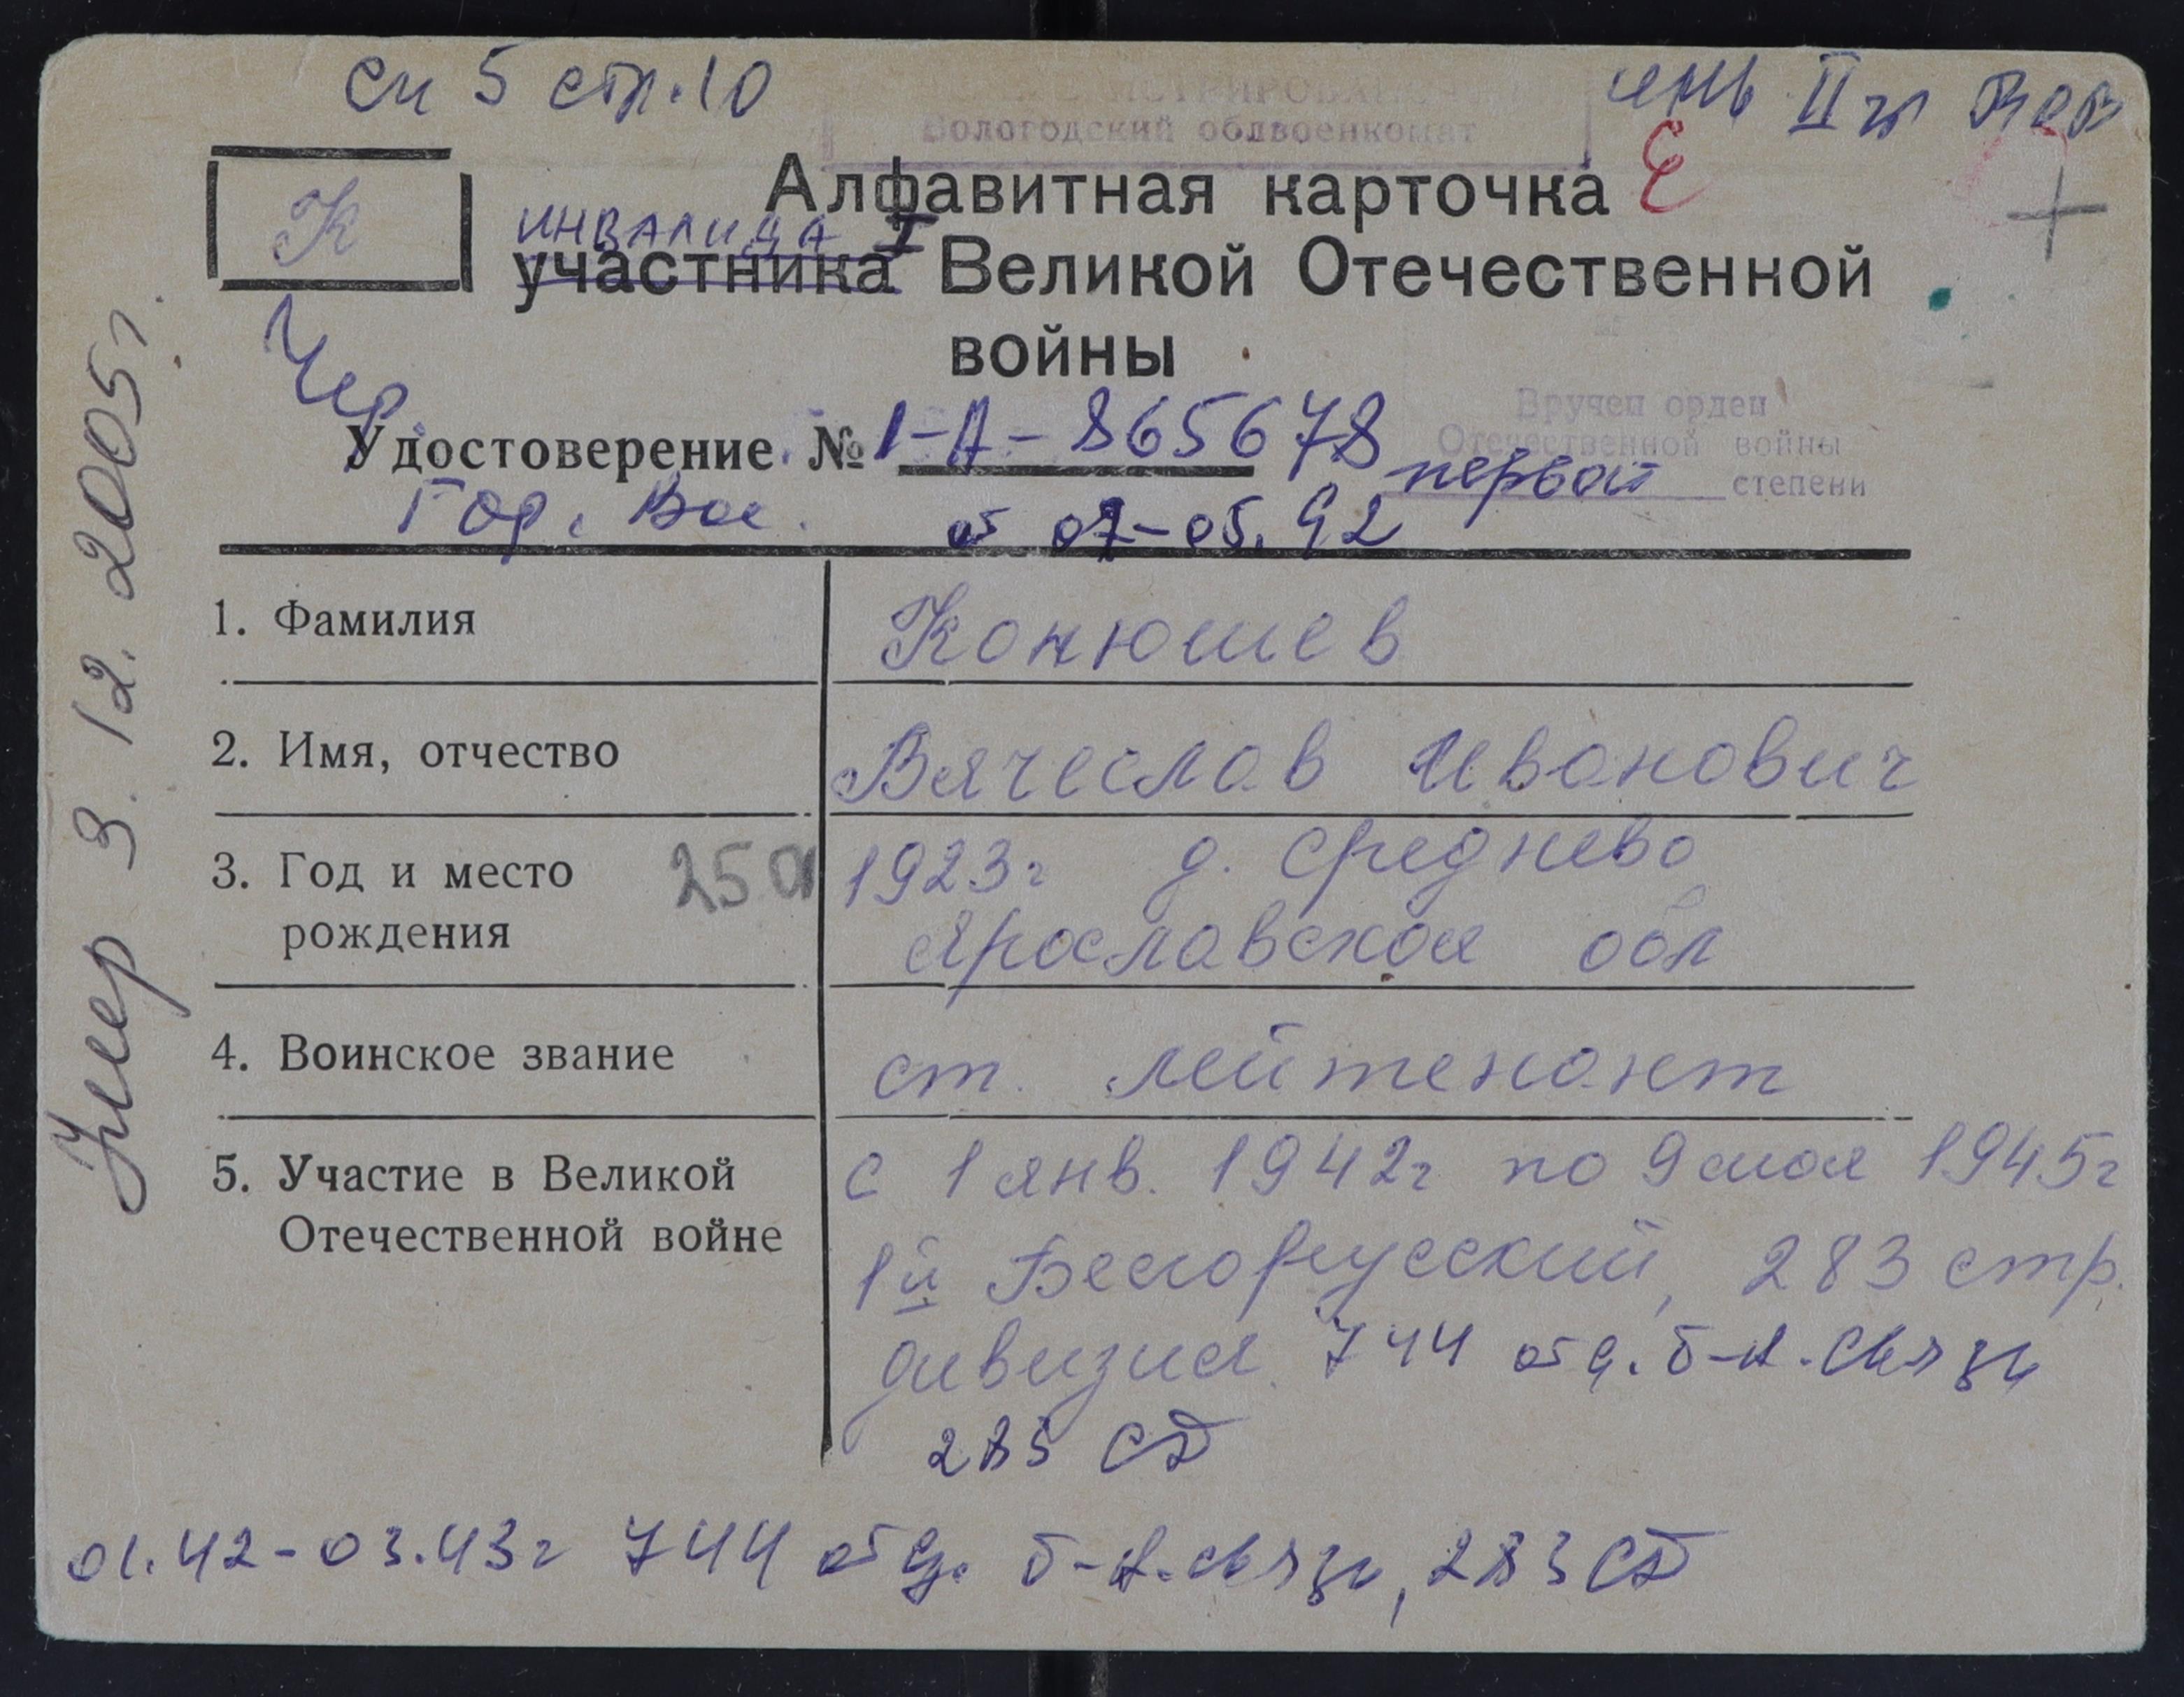 сп 5 стр. 10
инв II гр ВОВ
РЕГИСТРИРОВАН
Вологодский облвоенкомат
К
Алфавитная карточка Е
инвалида I
участника Великой Отечественной
войны
Чер.
Удостоверение № 1-А-865678
Вручен орден
Отечественной войны
первой степени
Гор. Вое.
от 07-05.92
Умер 3.12.2005г.
1. Фамилия
Конюшев
2. Имя, отчество
Вячеслав Иванович
3. Год и место
рождения
25.01
1923г д. Среднево
Ярославская обл
4. Воинское звание
ст. лейтенант
5. Участие в Великой
Отечественной войне
с 1 янв. 1942г по 9 мая 1945г
1й Белорусский, 283 стр.
дивизия. 744 отд. б-н. связи
283 СД
01.42-03.43г 744 отд. б-н. связи, 283 СД